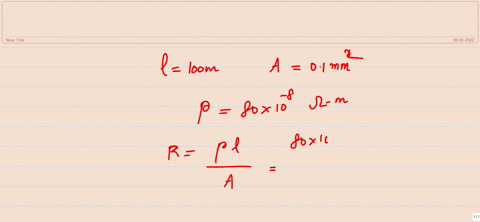 Note Title
06-03-2022
l = 100m A = 0.1 mm²
ρ = 80×10⁻⁸ Ω-m
R = ρl / A = 80×1
1/1